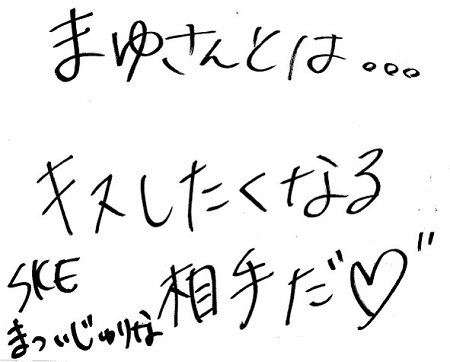 まゆさんとは。。。
キスしたくなる
相手だ♡"
SKE
まついじゅりな